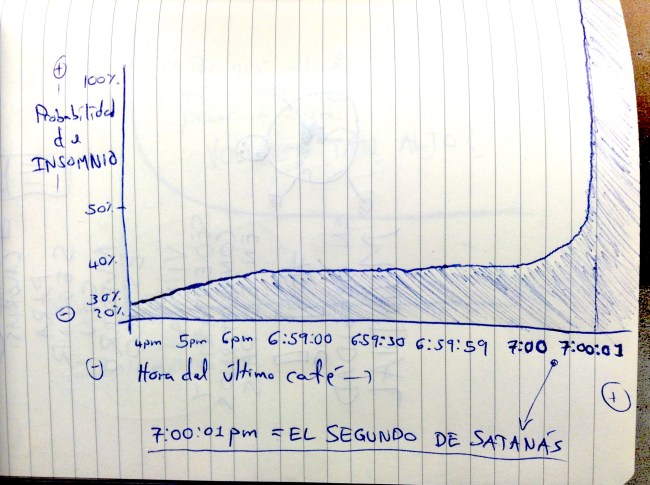 +
100%
Probabilidad
de
INSOMNIO
50%
40%
30%
20%
-
4pm 5pm 6pm 6:59:00 6:59:30 6:59:59 7:00 7:00:01
- Hora del último café → +
7:00:01 pm = EL SEGUNDO DE SATANÁS